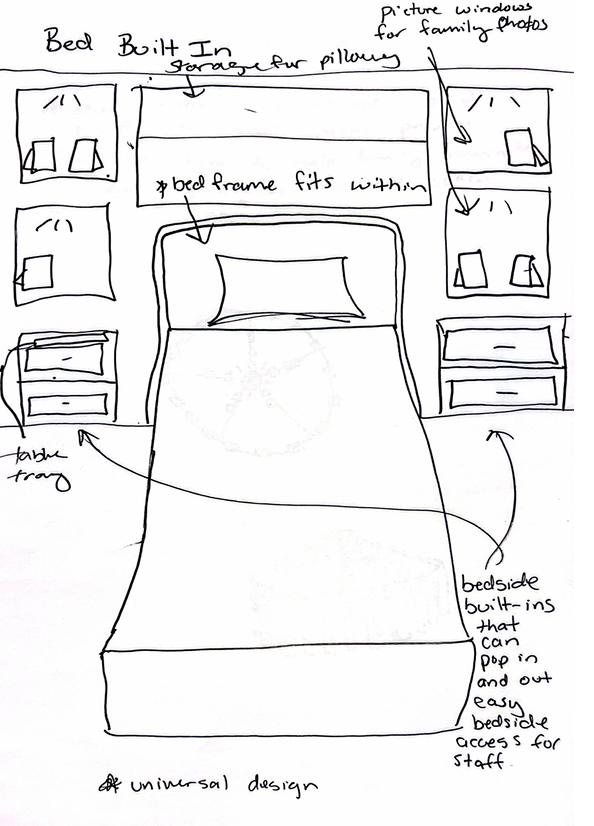 Bed Built In
picture windows
for family photos
storage for pillows
* bed frame fits within
table
tray
bedside
built-ins
that
can
pop in
and out
easy
bedside
access for
staff.
* universal design